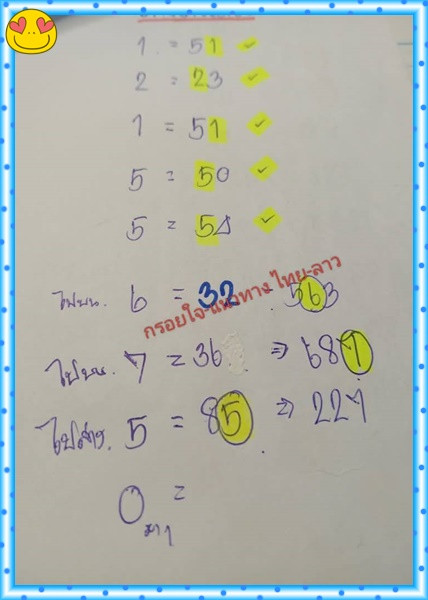 1 = 51 ✓
2 = 23 ✓
1 = 51 ✓
5 = 50 ✓
5 = 54 ✓
ไปบน. 6 = 32 - 563
กรอยใจ-แนวทาง-ไทย-ลาว
ไปบน. 7 = 36 ⇒ 687
ไปล่าง. 5 = 85 ⇒ 227
0 =
มาๆ